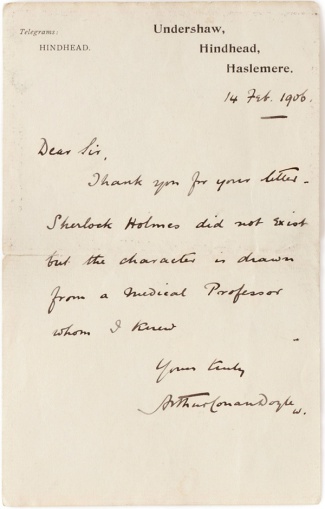 Telegrams:
HINDHEAD.
Undershaw,
Hindhead,
Haslemere.
14 Feb. 1906.
Dear Sir,
Thank you for your letter -
Sherlock Holmes did not exist
but the character is drawn
from a Medical Professor
whom I knew
Yours truly
Arthur Conan Doyle